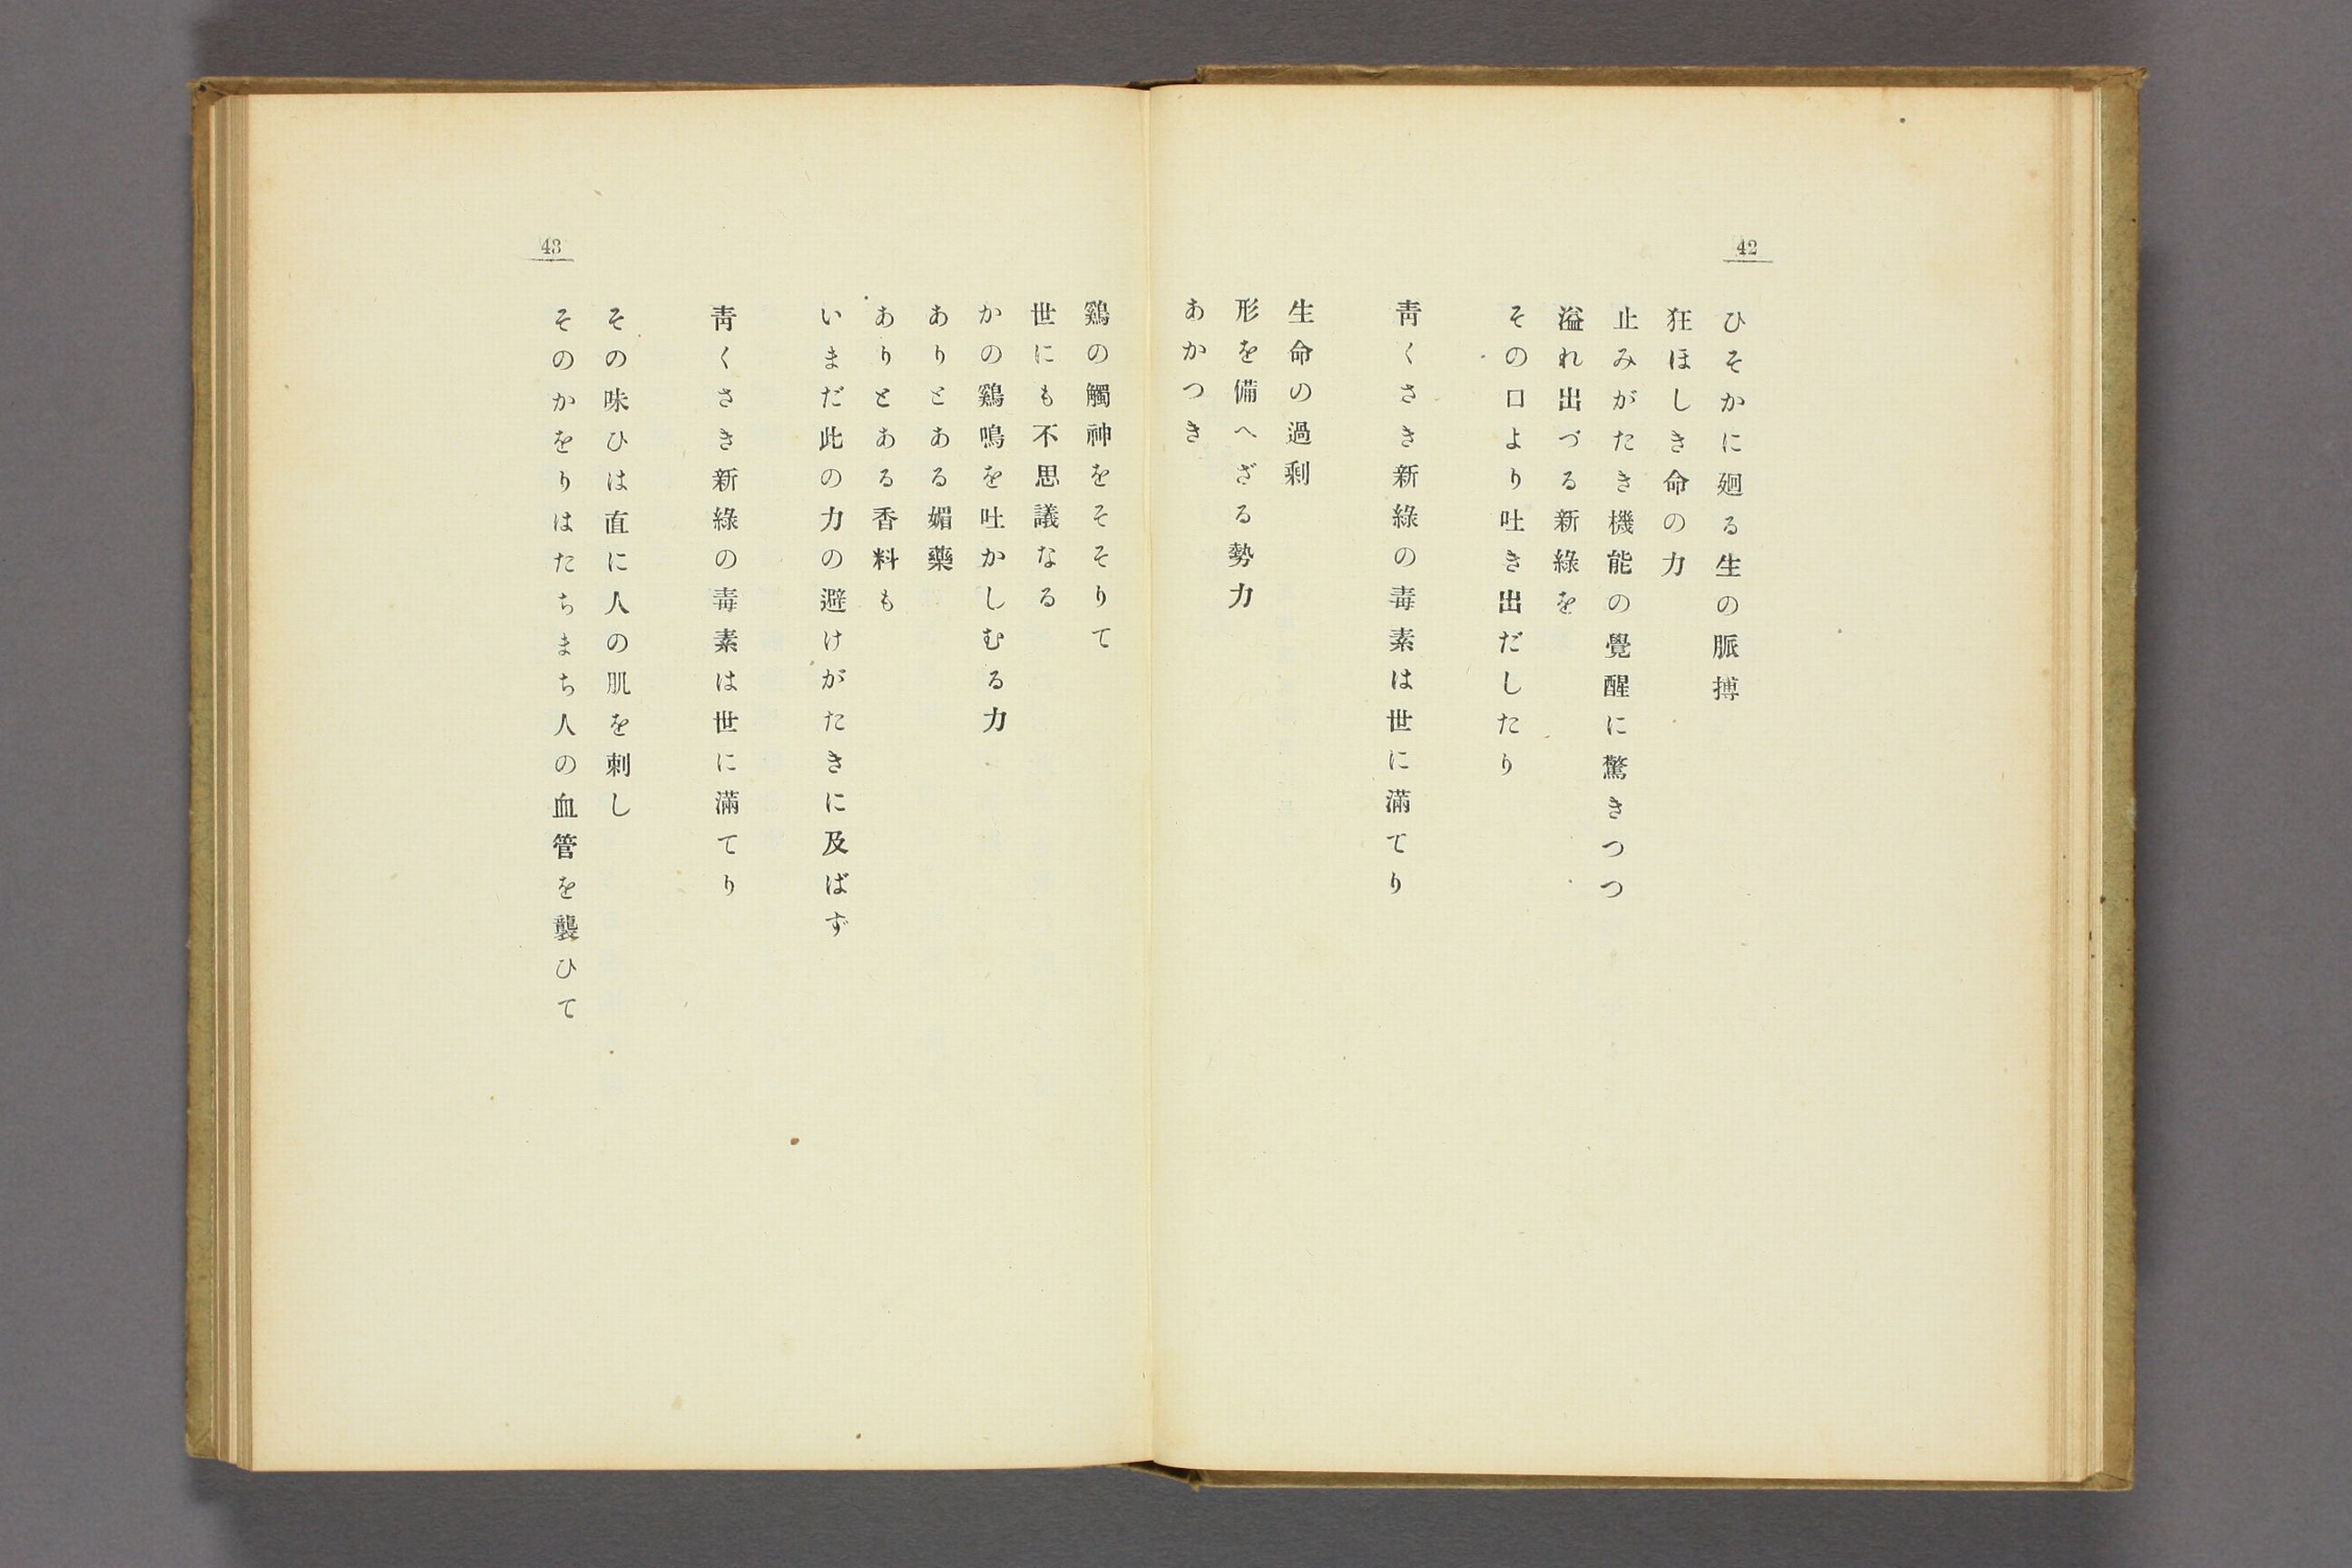 42
ひそかに廻る生の脈搏
狂ほしき命の力
止みがたき機能の覺醒に驚きつつ
溢れ出づる新綠を
その口より吐き出だしたり
靑くさき新綠の毒素は世に滿てり
生命の過剩
形を備へざる勢力
あかつき
鷄の觸神をそそりて
世にも不思議なる
かの鷄鳴を吐かしむる力
ありとある媚藥
ありとある香料も
いまだ此の力の避けがたきに及ばず
靑くさき新綠の毒素は世に滿てり
その味ひは直に人の肌を刺し
そのかをりはたちまち人の血管を襲ひて
43